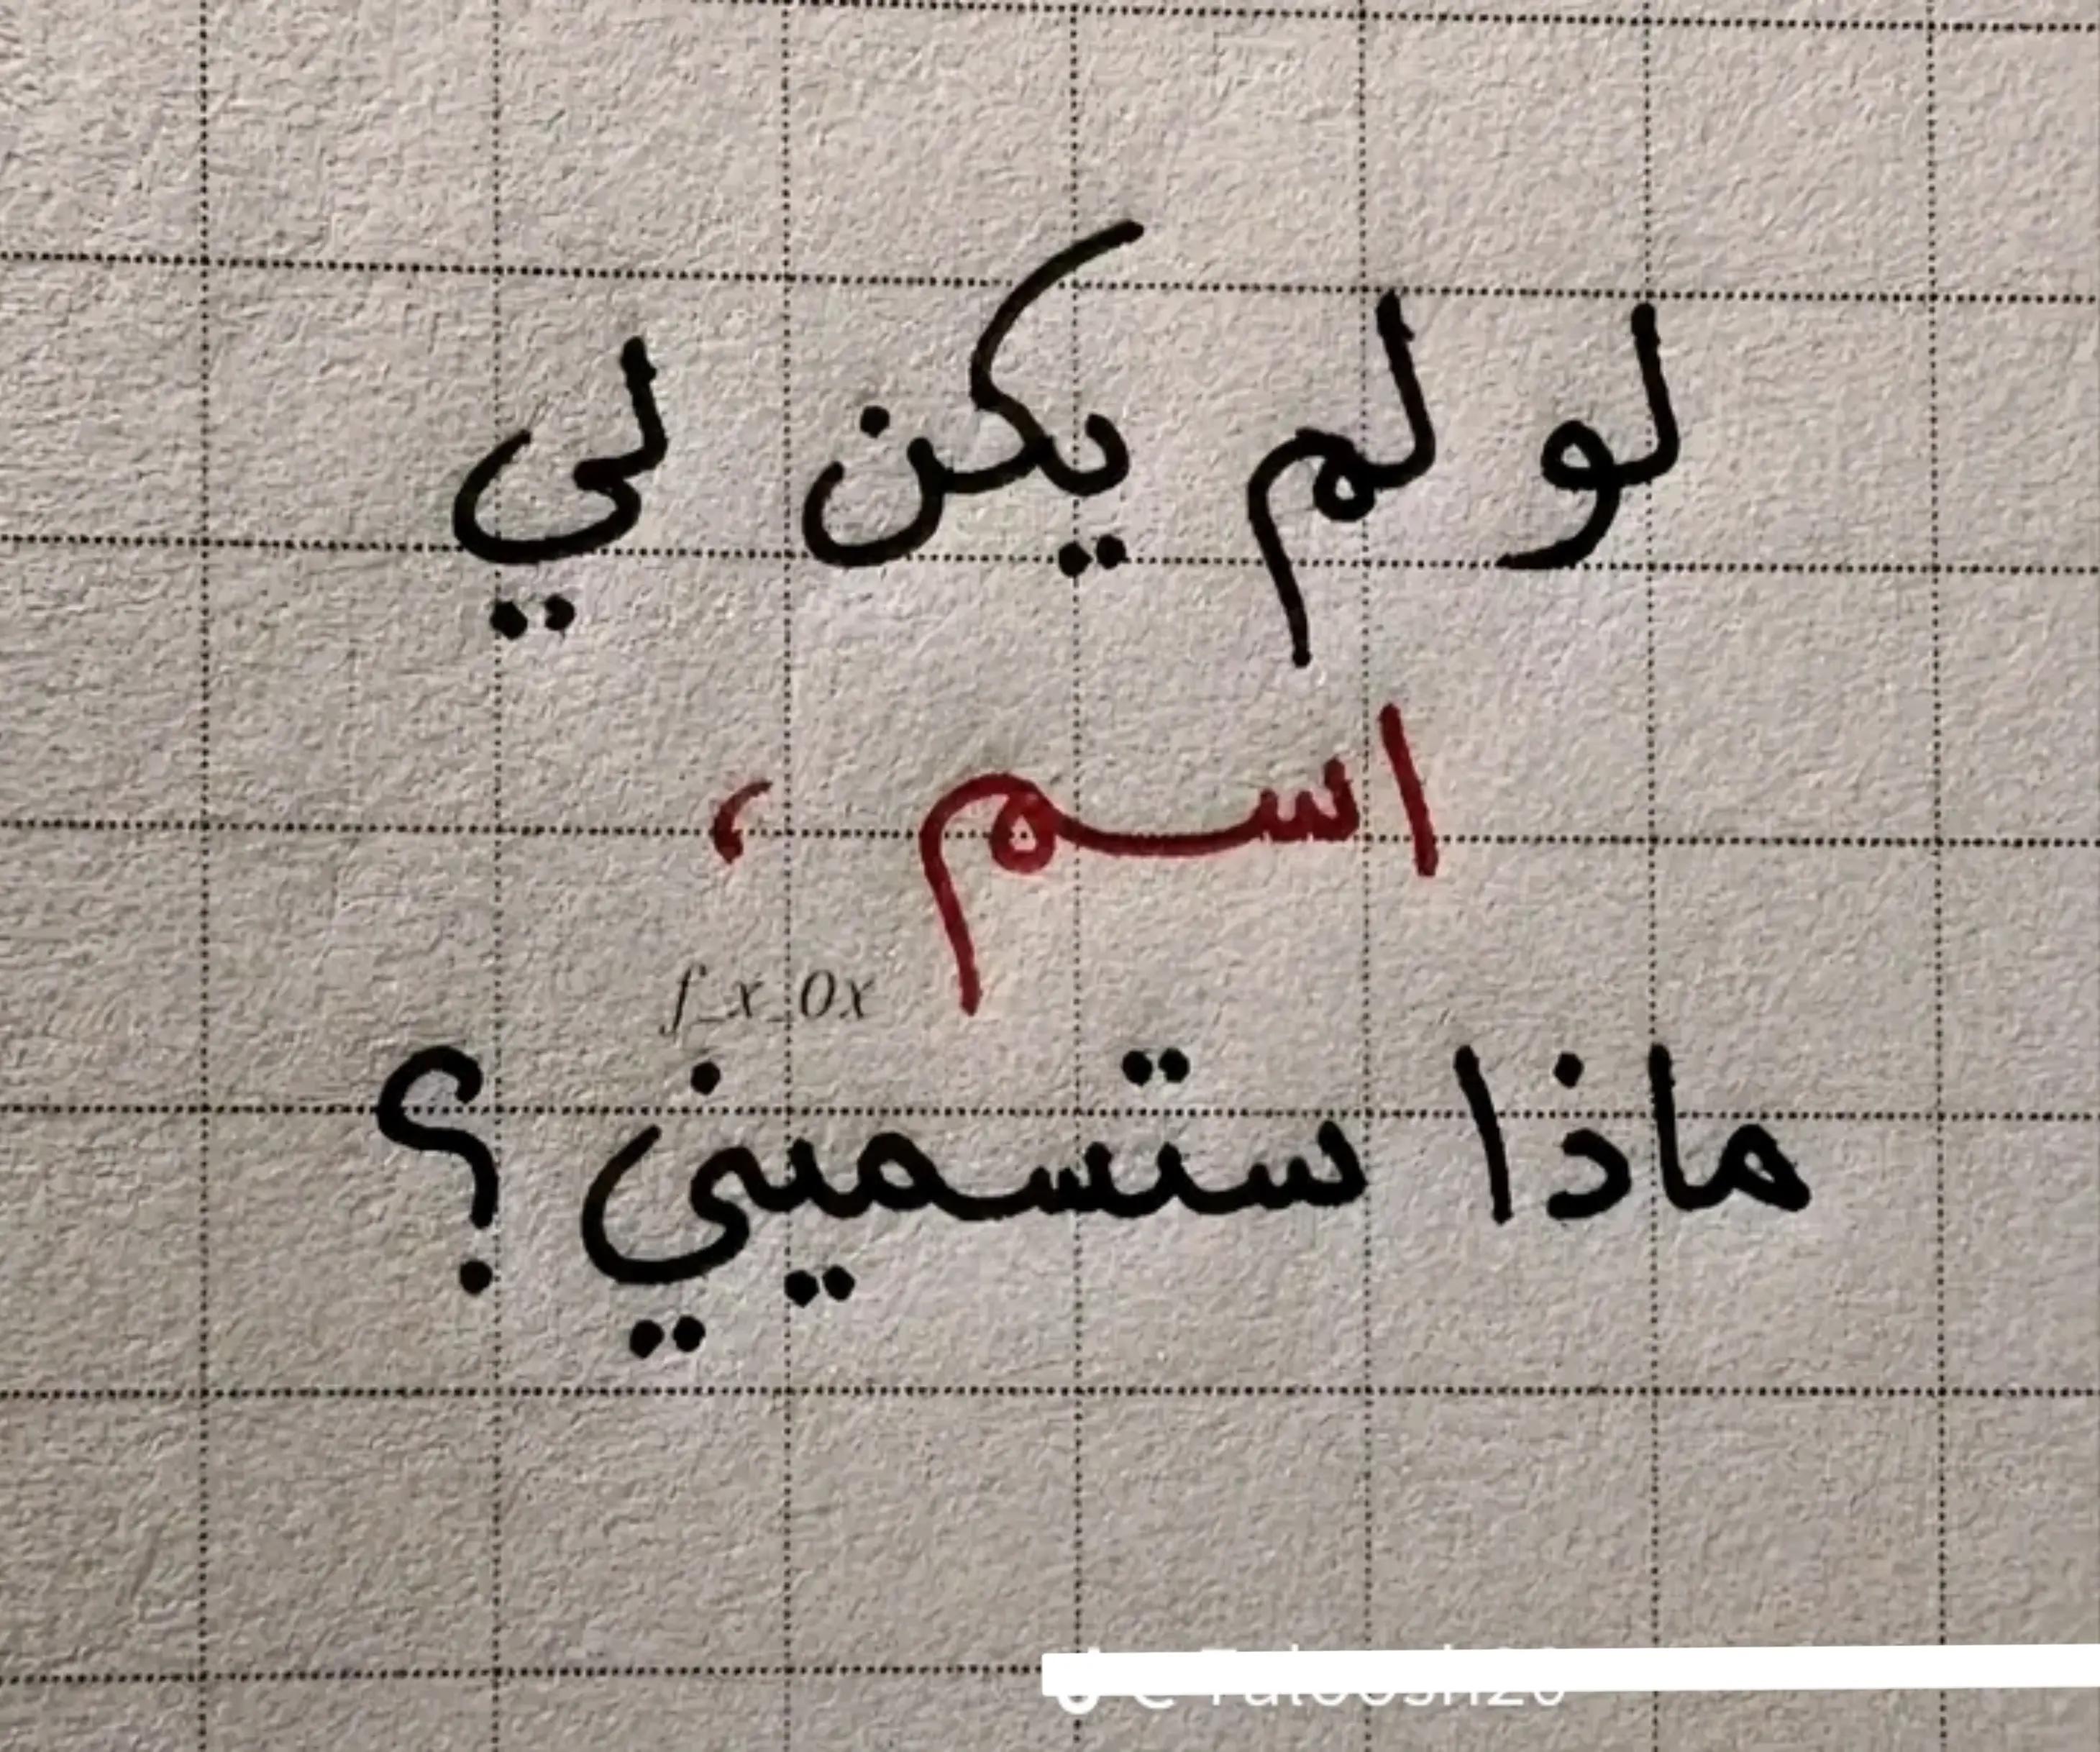 لو لم يكن لي
اسم ،
f_x_0x
ماذا ستسميني ؟